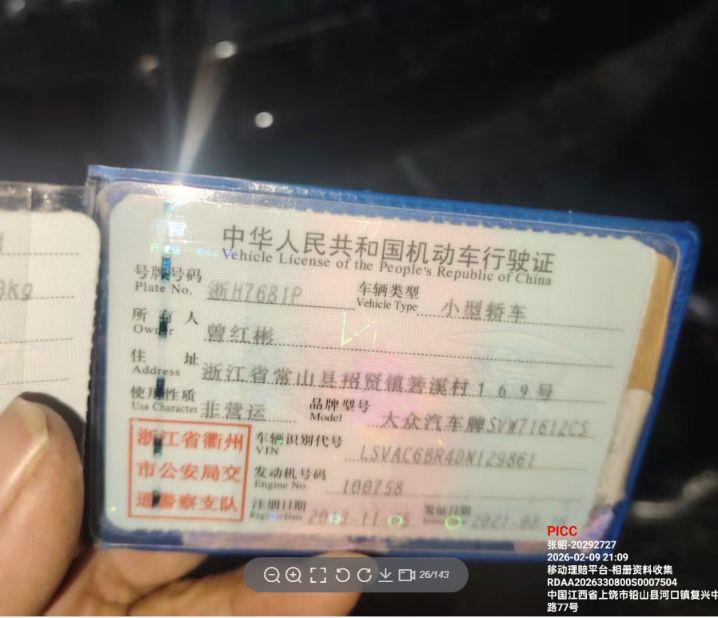 中华人民共和国机动车行驶证
Vehicle License of the People's Republic of China
号牌号码 浙H7681P 车辆类型 小型轿车
Plate No. Vehicle Type
所有人 曾红彬
Owner
住址 浙江省常山县招贤镇箬溪村169号
Address
使用性质 非营运 品牌型号 大众汽车牌SVW71612CS
Use Character Model
浙江省衢州
市公安局交
通警察支队
车辆识别代号 LSVAC6BR4DN129861
VIN
发动机号码 100758
Engine No.
注册日期 发证日期
Register Date
PICC
张昭-20292727
2026-02-09 21:09
移动理赔平台-相册资料收集
RDAA2026330800S0007504
中国江西省上饶市铅山县河口镇复兴中
路77号
26/143